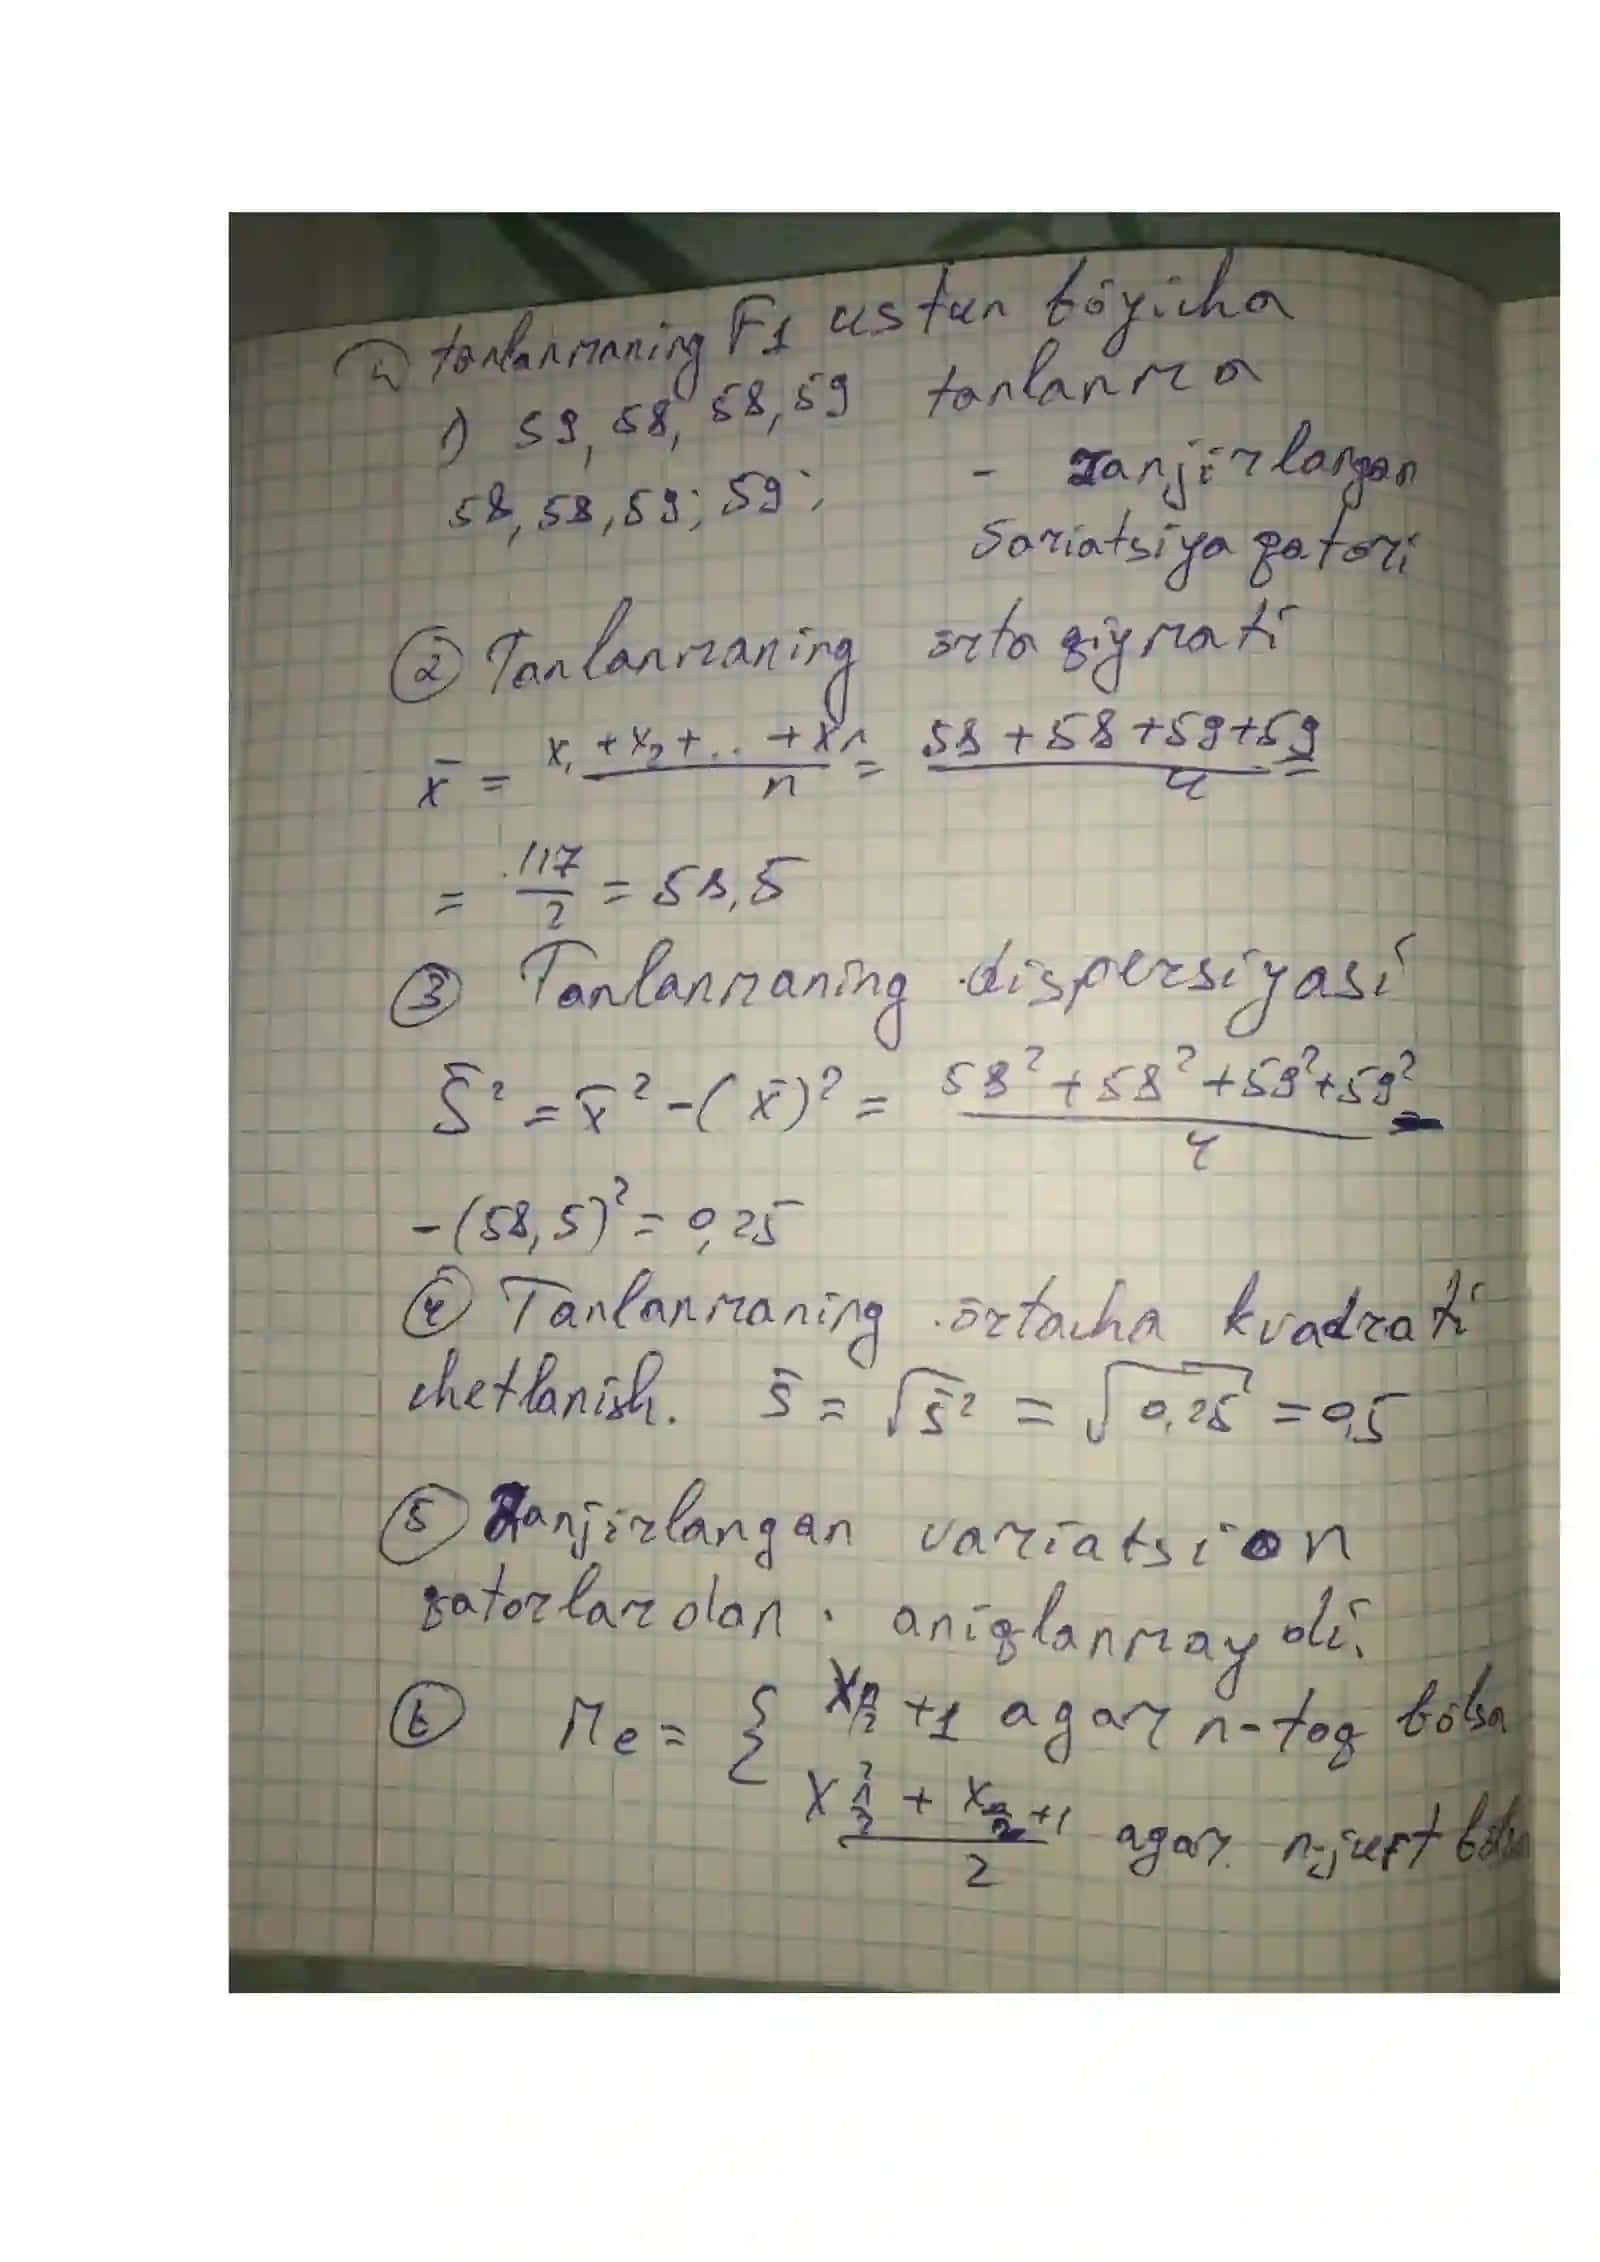 1) tanlanmaning F1 ustun bōyicha
1) 59, 58, 58, 59 tanlanma
58, 58, 59; 59; - Zanjirlangan
Sariatsiya qatori
② Tanlanmaning ōrta qiymati
x̄ = (x₁ + x₂ + .. + xn)/n = (58 + 58 + 59 + 59)/4 =
= 117/2 = 58,5
③ Tanlanmaning dispersiyasi
S̄² = x̄² - (x̄)² = (58² + 58² + 59² + 59²)/4 -
- (58,5)² = 0,25
④ Tanlanmaning ōrtacha kvadrati
chetlanish. S̄ = √S̄² = √0,25 = 0,5
⑤ Zanjirlangan variatsion
qatorlardan aniqlanmaydi.
⑥ Me = { X n/2 + 1 agar n-toq bōlsa
(X n/2 + X n/2 + 1)/2 agar n-juft bōlsa